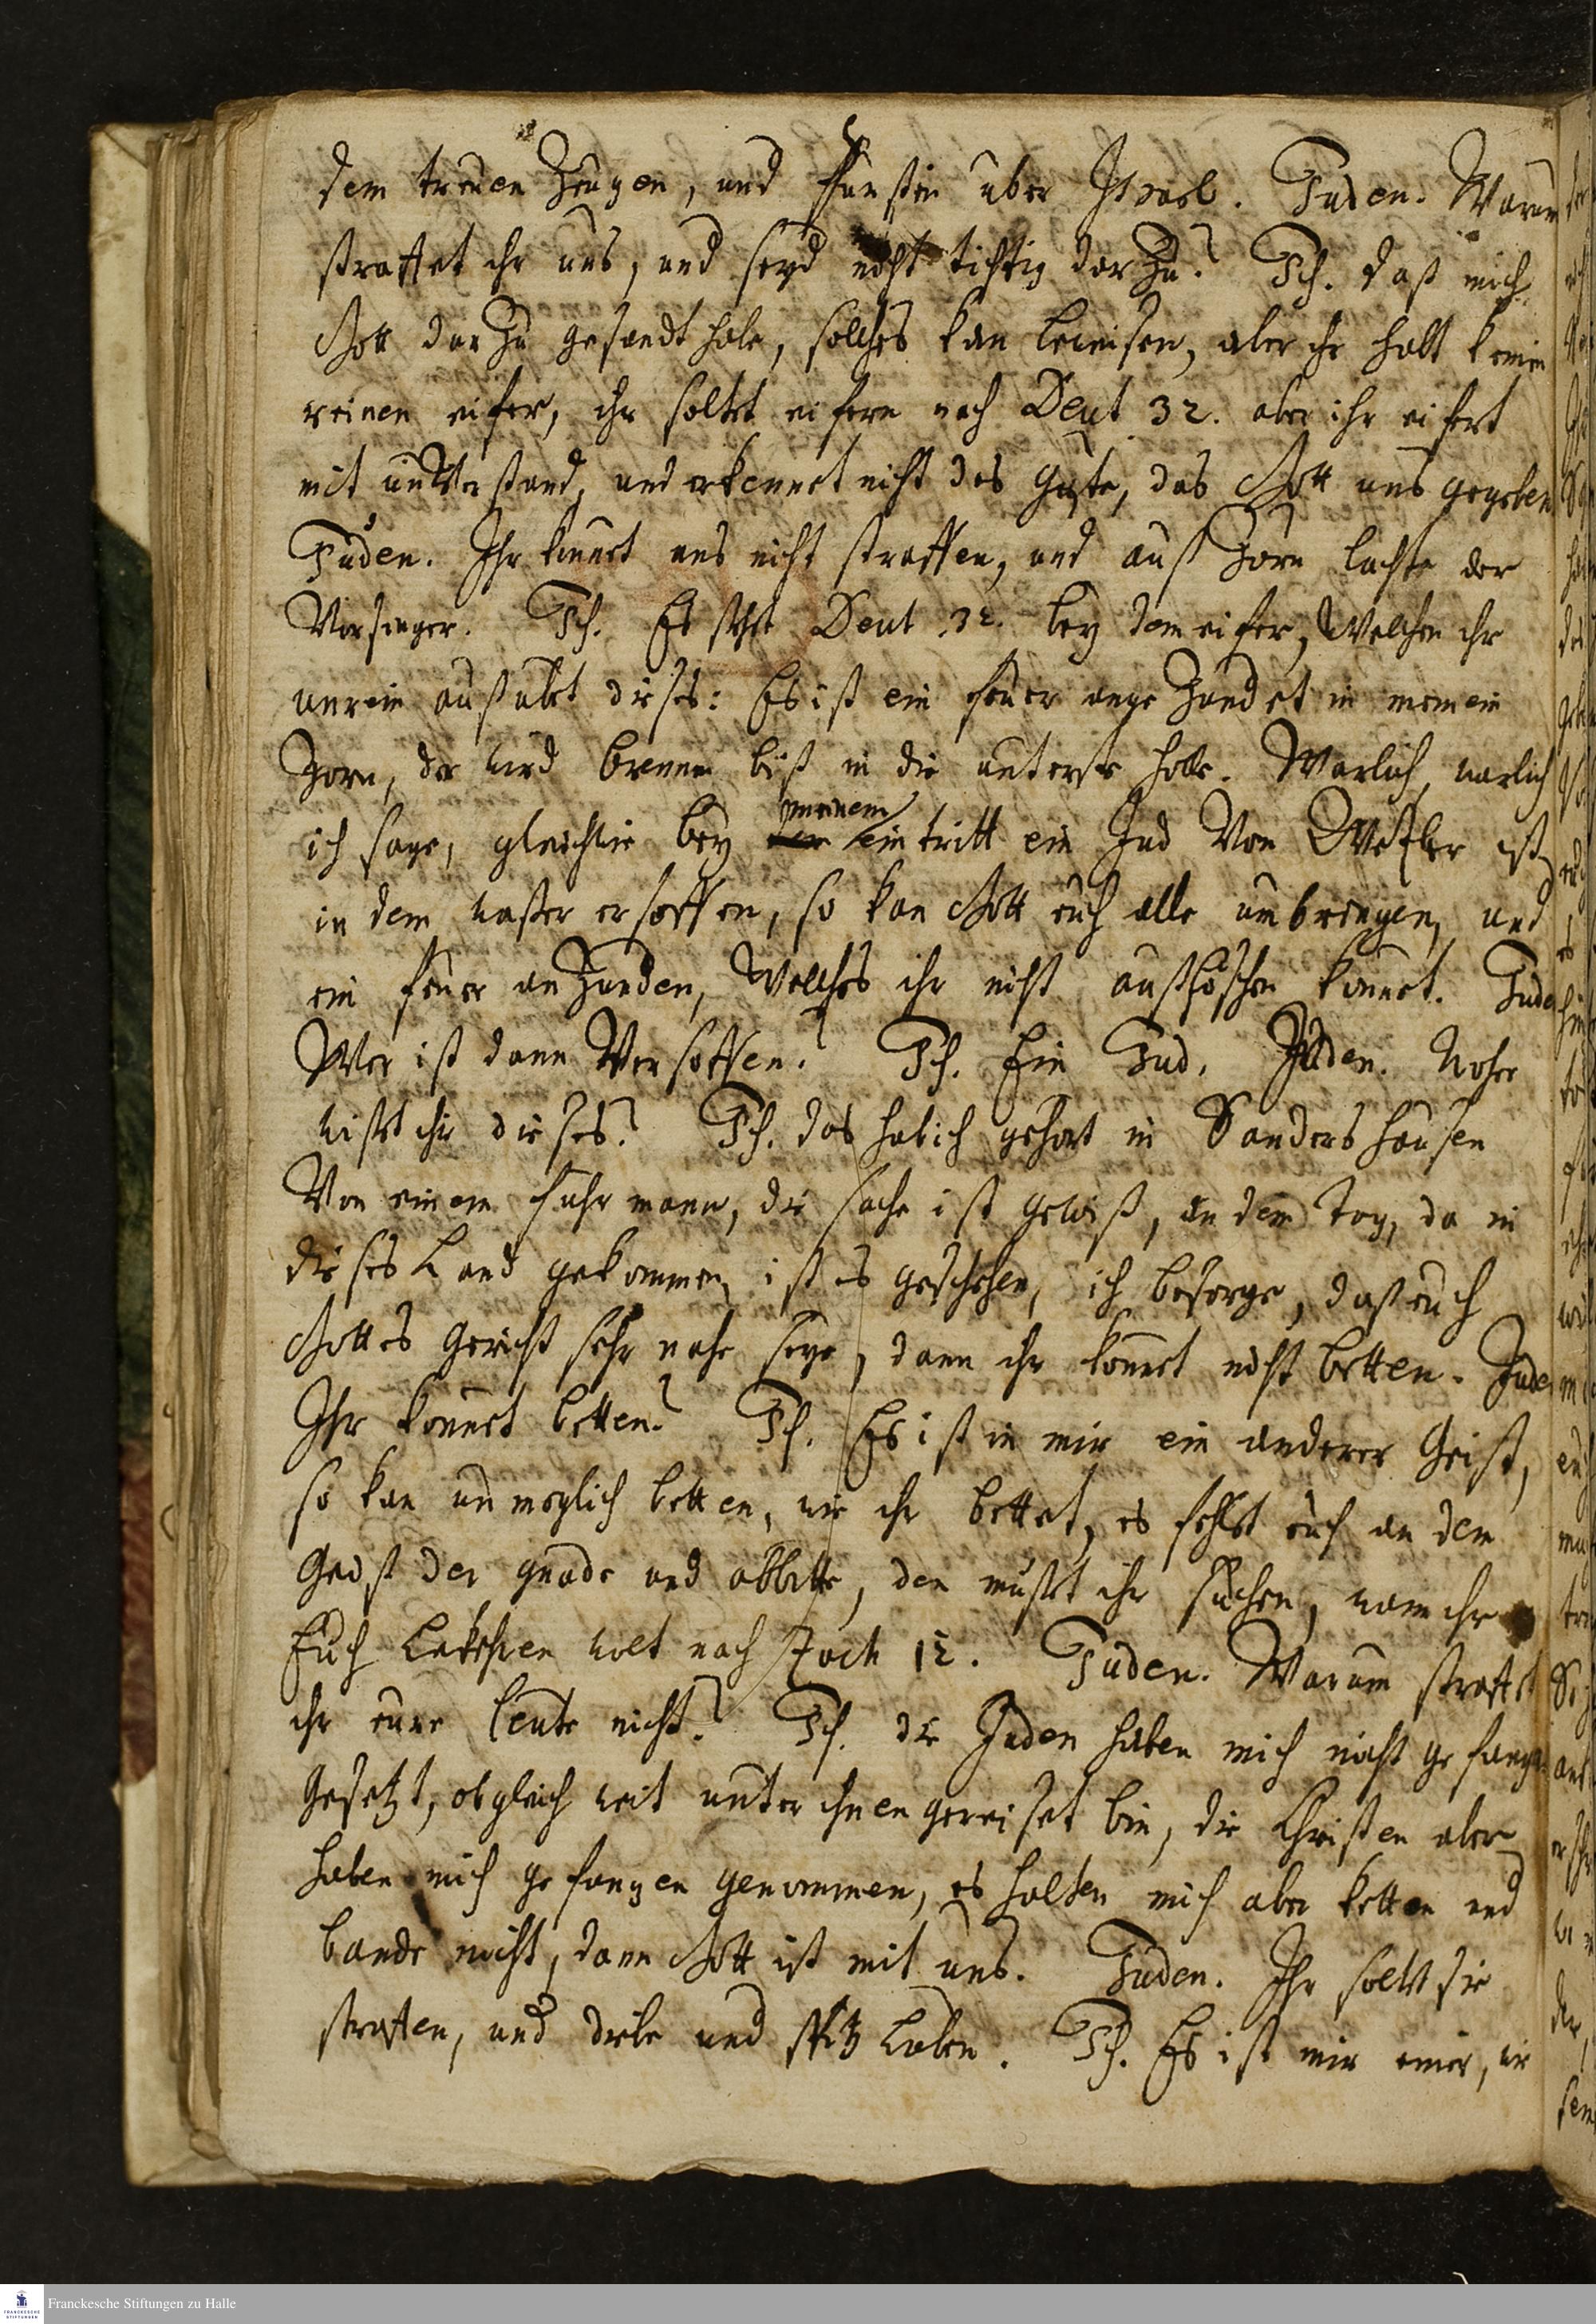 dem treuen Zeugen, und Fürsten über Israel. Juden. Warum
straffet ihr uns, und seyd nicht tichtig dar Zu? Ich. daß mich
Gott dar Zu gesandt habe, solches kan beweisen, aber ihr habt keinen
reinen eifer, ihr soltet eifern nach Deut 32. aber ihr eifert
mit unVerstand, und erkennet nicht das Gute, das Gott uns gegeben
Juden. Ihr könnet uns nicht straffen, und auß Zorn lachte der
Vorsinger. Ich. Es stehet Deut 32. bey dem eifer, Welchen ihr
unrein außübet dieses: Es ist ein feuer ange Zündet in meinem
Zorn, der wird brennen biß in die unterste hölle. Warlich, warlich
ich sage, gleichwie bey meinem eintritt ein Jud Von ist
in dem waßer ersoffen, so kan Gott euch alle umbringen, und
ein feuer an Zünden, Welches ihr nicht außlöschen könnet. Jude
Wer ist dann Versoffen? Ich. Ein Jud. Jüden. Woher
wißt ihr dieses? Ich. das hab ich gehört in Sandershausen
Von einem fuhrmann, die sache ist gewiß, an dem Tag, da in
dieses Land gekommen, ist es geschehen, ich besorge, daß euch
Gottes Gericht sehr nahe seye, dann ihr könnet nicht betten. Jude
Ihr könnet betten? Ich. Es ist in mir ein anderer Geist,
so kan unmöglich betten, wie ihr bettet, es fehlet euch an dem
Geist der gnade und abbitte, den müßt ihr suchen, wann ihr
Euch bekehren wolt nach Zach 12. Juden. Warum straffet
ihr eure leute nicht? Ich. die Juden haben mich nicht gefangen
Gesetzt, obgleich weit unter ihnen gereiset bin, die Christen aber
haben mich gefangen genommen, es halten mich aber ketten und
bande nicht, dann Gott ist mit uns. Juden. Ihr soltet sie
straffen, und diebe und spitz buben. Ich. Es ist mir einer, wie
Franckesche Stiftungen zu Halle